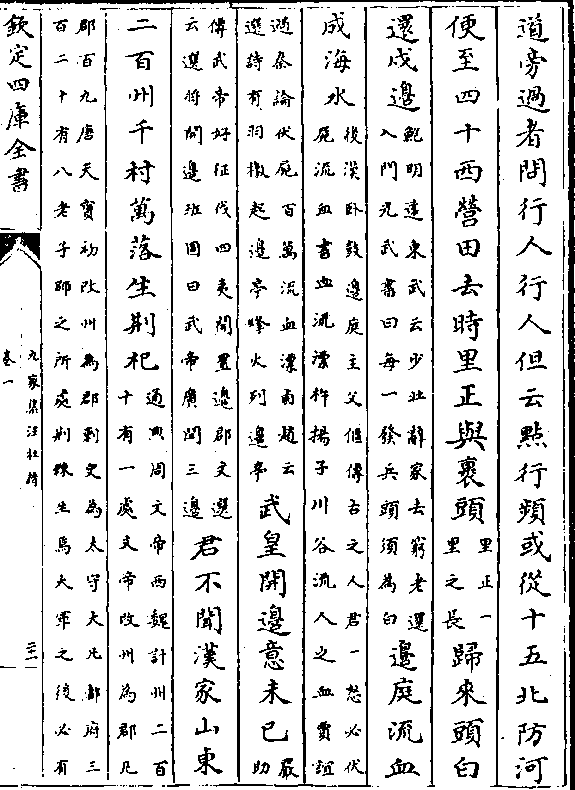 道旁過者問行人行人但云點行頻或從十五北防河
便至四十西營田去時里正與裹頭
里正一
里之長
歸來頭白
還戍邊
鮑明逺東武云少壯辭家去窮老還
入門光武書曰每一發兵頭須為白
邊庭流血
成海水
後漢卧鼓邊庭主父偃傳古之人君一怒必伏
尸流血書血流漂杵揚子川谷流人之血賈誼
過秦論伏尸百萬流血漂鹵趙云
選詩有羽檄起邊亭烽火列邊亭
武皇開邊意未已
嚴
助
傳武帝好征伐四夷開置邊郡文選
云邊將開邊班固曰武帝廣開三邊
君不聞漢家山東
二百州千村萬落生荆杞
通典周文帝西魏計州二百
十有一處文帝改州為郡凡
郡百九唐天寶初改州為郡刺史為太守大凡都府三
百二十有八老子師之所處荆棘生焉大軍之後必有
欽定四庫全書
九家集注杜詩
卷一